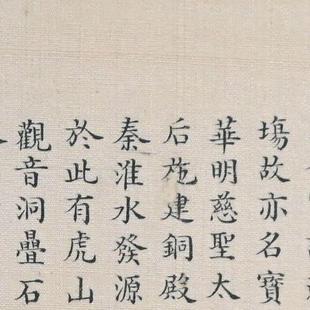 塲故亦名寶
華明慈聖太
后㐌建銅殿
秦淮水發源
於此有虎山
觀音洞疊石